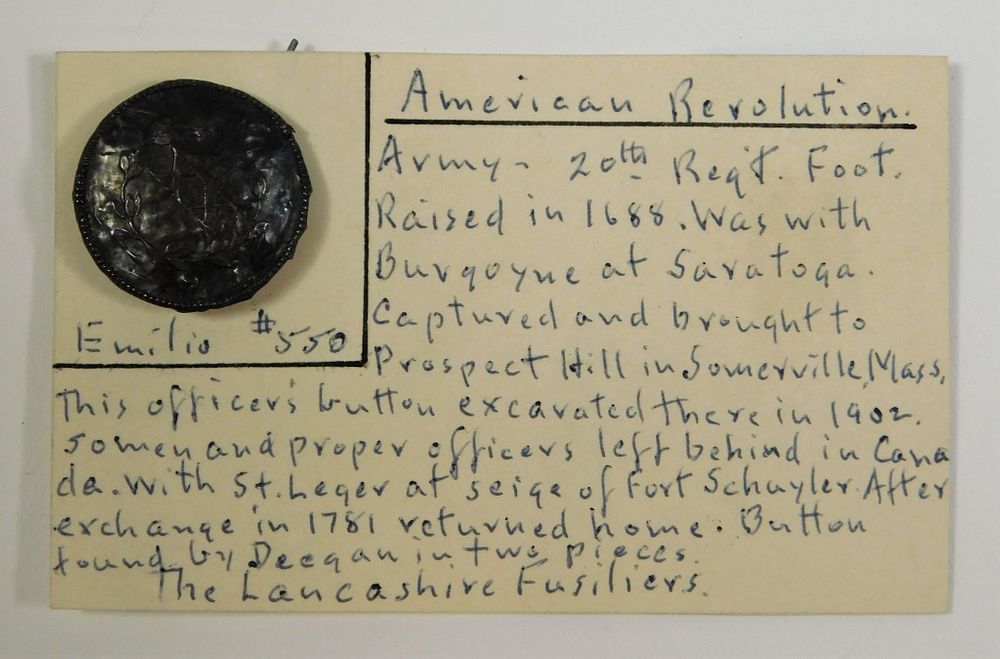 American Revolution.
Army - 20th Reg't. Foot.
Raised in 1688. Was with
Burgoyne at Saratoga.
Captured and brought to
Prospect Hill in Somerville, Mass.
Emilio #550
This officer's button excavated there in 1902.
50 men and proper officers left behind in Cana
da. With St. Leger at seige of Fort Schuyler. After
exchange in 1781 returned home. Button
found by Deegan in two pieces.
The Lancashire Fusiliers.